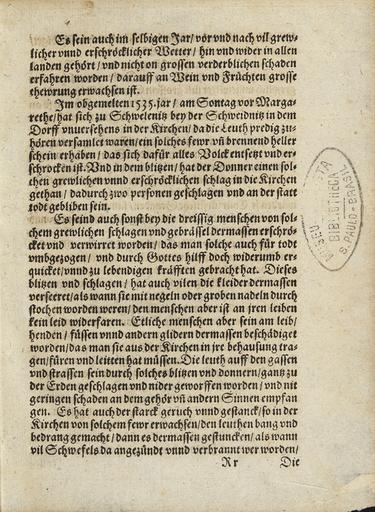 Es sein auch im selbigen Jar/ vor vnd nach vil grew-
licher vnnd erschröcklicher Wetter/ hin vnd wider in allen
landen gehört/ vnd nicht on grossen verderblichen schaden
erfahren worden/ darauff an Wein vnd Früchten grosse
thewrung erwachsen ist.
Im obgemelten 1535. jar/ am Sontag vor Marga-
rethe/ hat sich zu Schwelenitz bey der Schweidnitz in dem
Dorff vnuersehens in der Kirchen/ da die Leuth predig zu-
hören versamlet waren/ ein solches fewr vñ brennend heller
schein erhaben/ das sich dafür alles Volck entsetzt vnd er-
schrocken ist. Vnd in dem blitzen/ hat der Donner einen sol-
chen grewlichen vnnd erschröcklichen schlag in die Kirchen
gethan/ dadurch zwo personen geschlagen vnd an der statt
todt gebliben sein.
Es seind auch sonst bey die dreissig menschen von sol-
chem grewlichen schlagen vnd gebrässel dermassen erschrö-
cket vnd verwirret worden/ das man solche auch für todt
vmbgezogen/ vnd durch Gottes hilff doch widerumb er-
quicket/ vnnd zu lebendigen kräfften gebracht hat. Dieses
blitzen vnd schlagen/ hat auch vilen die kleider dermassen
verseeret/ als wann sie mit negeln oder groben nadeln durch
stochen worden weren/ den menschen aber ist an jren leiben
kein leid widerfaren. Etliche menschen aber sein am leib/
henden/ füssen vnnd andern glidern dermassen beschädiget
worden/ das man sie aus der Kirchen in jre behausung tra-
gen/ füren vnd leitten hat müssen. Die leuth auff den gassen
vnd strassen sein durch solches blitzen vnd donnern/ gantz zu
der Erden geschlagen vnd nider geworffen worden/ vnd nit
geringen schaden an dem gehör vñ andern Sinnen empfan
gen. Es hat auch der starck geruch vnnd gestanck/ so in der
Kirchen von solchem fewr erwachsen/ den leuthen bang vnd
bedrang gemacht/ dann es dermassen gestuncken/ als wann
vil Schwefels da angezündt vnnd verbrannt wer worden/
Rr Die
MUSEU PAULISTA
BIBLIOTHECA
S. PAULO-BRASIL